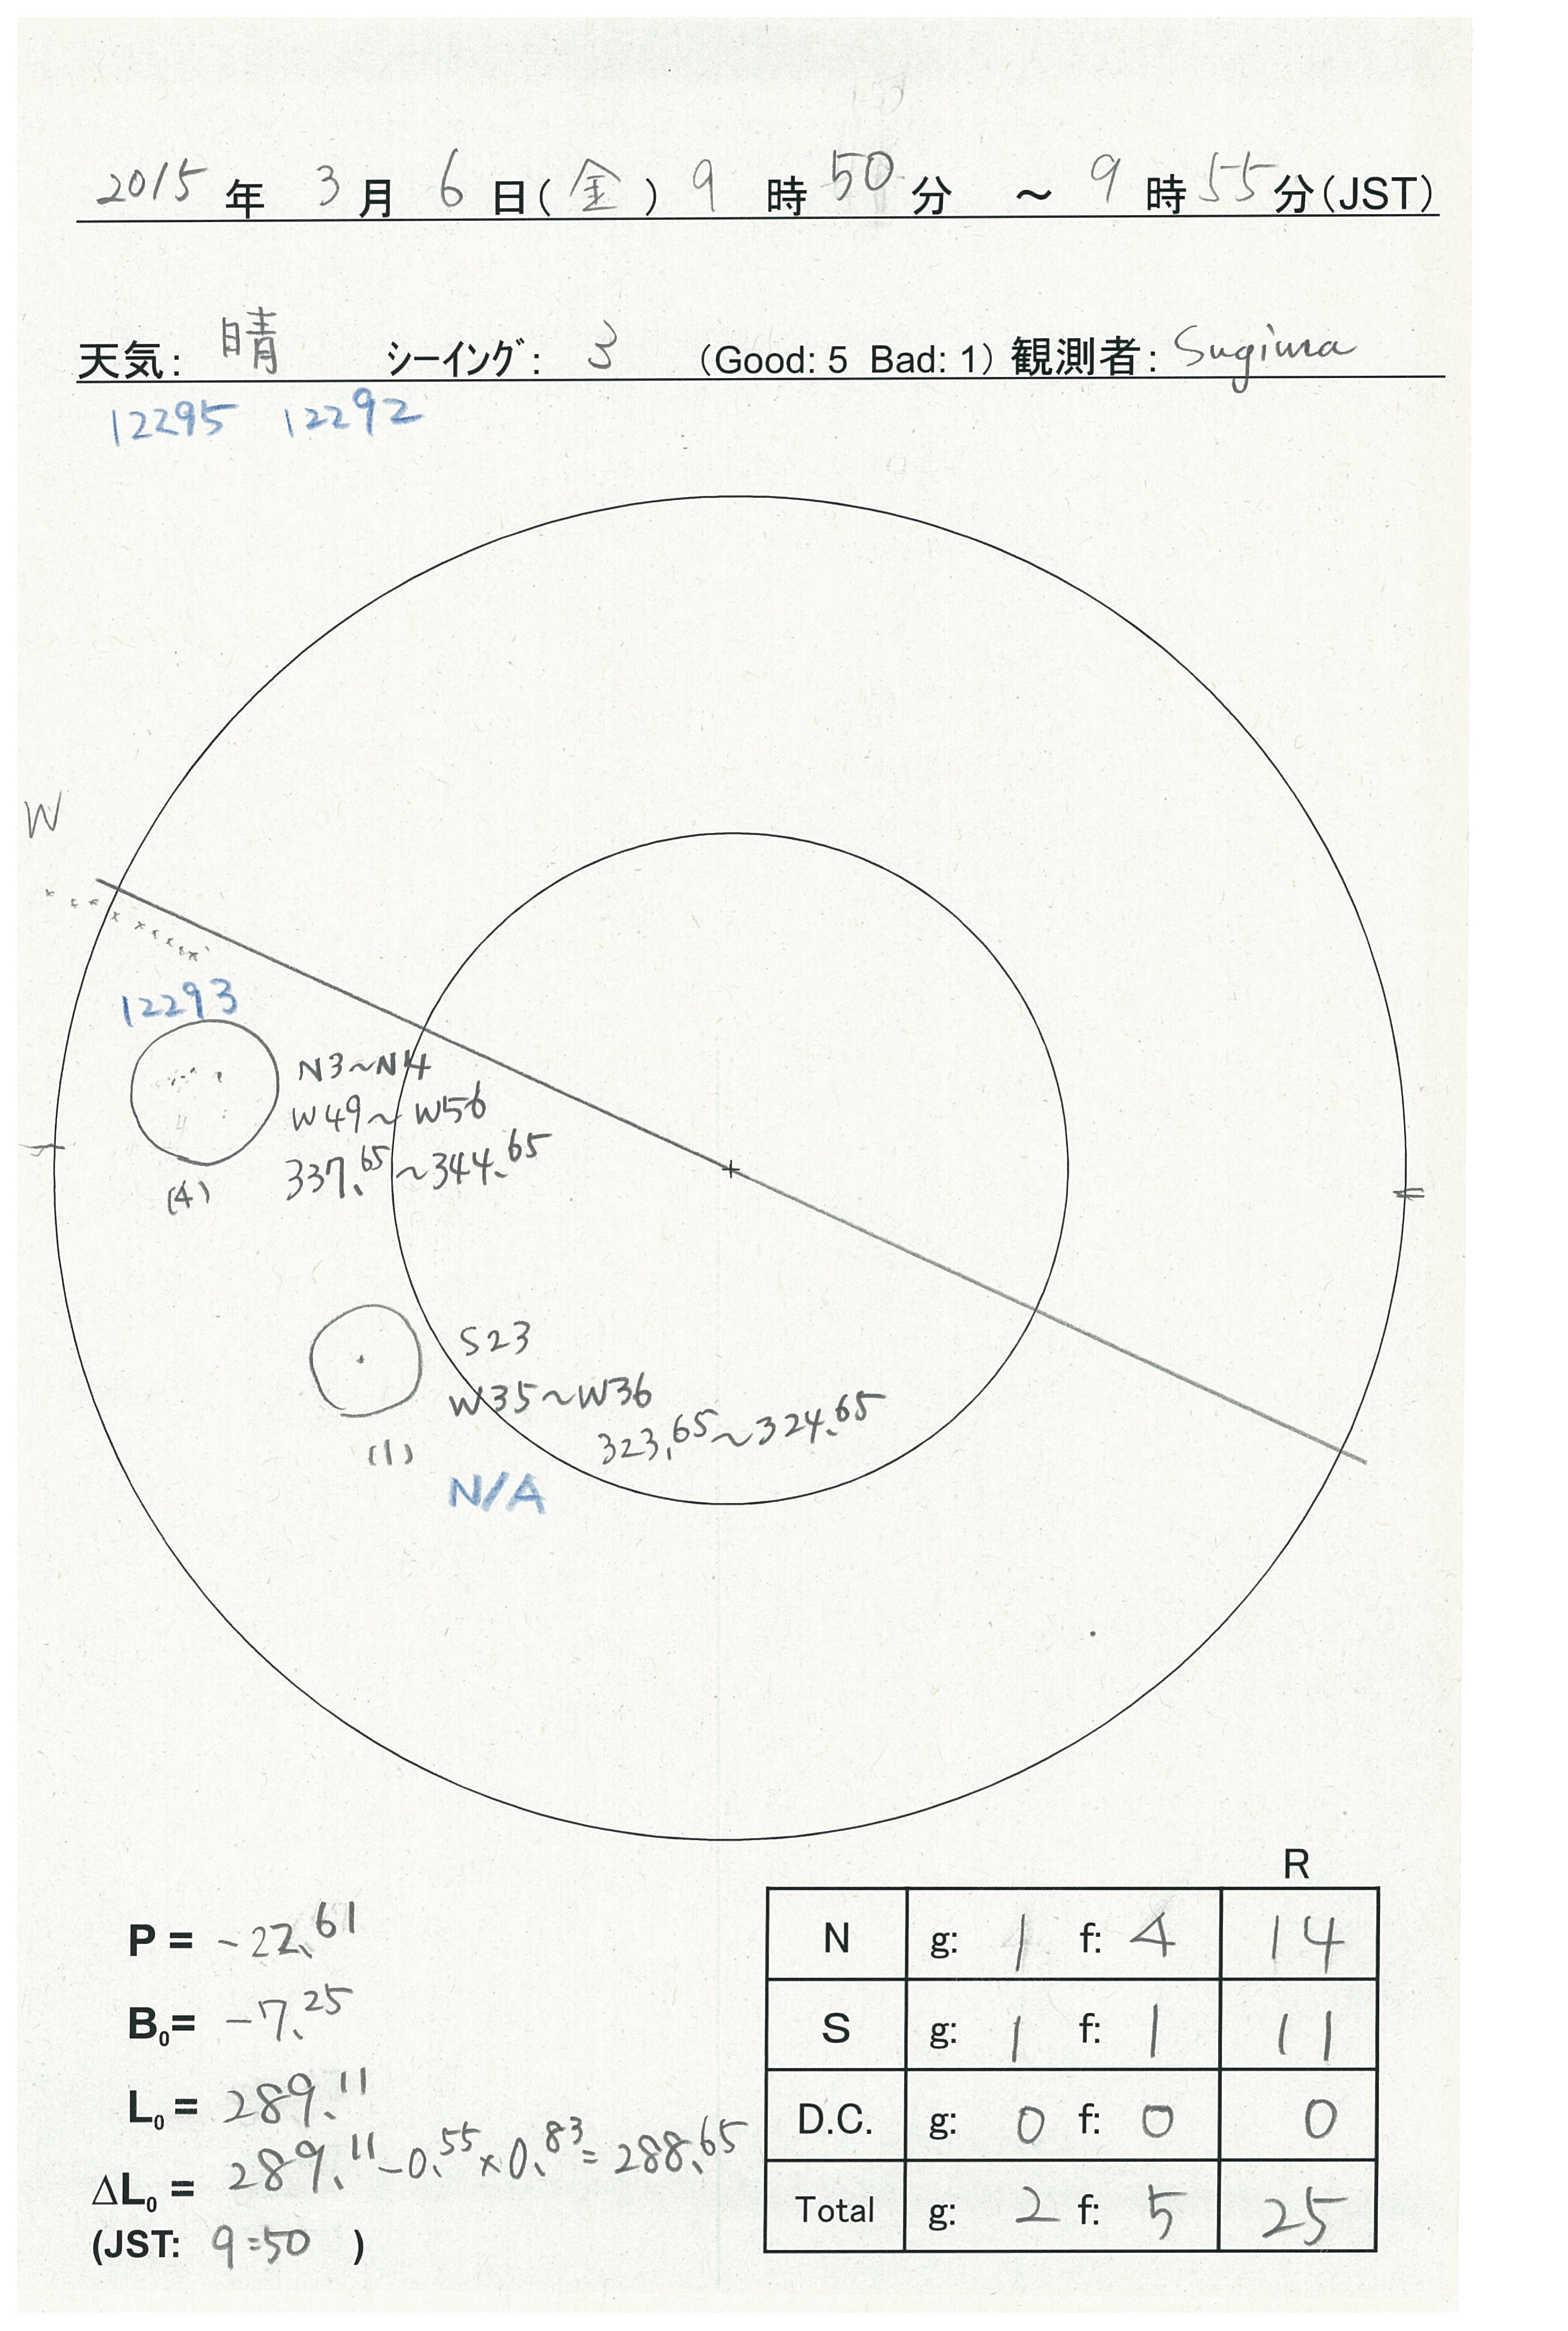 2015 年 3 月 6 日(金) 9 時 50 分 ～ 9 時 55 分(JST)
天気: 晴 シーイング: 3 (Good: 5 Bad: 1) 観測者: Sugiura
12295 12292
W
12293
N3～N4
W49～W56
337.65～344.65
(4)
S23
W35～W36
323.65～324.65
(1)
N/A
R
N g: 1 f: 4 14
S g: 1 f: 1 11
D.C. g: 0 f: 0 0
Total g: 2 f: 5 25
P = -22.61
B0= -7.25
L0= 289.11
ΔL0 = 289.11-0.55×0.83=288.65
(JST: 9:50 )